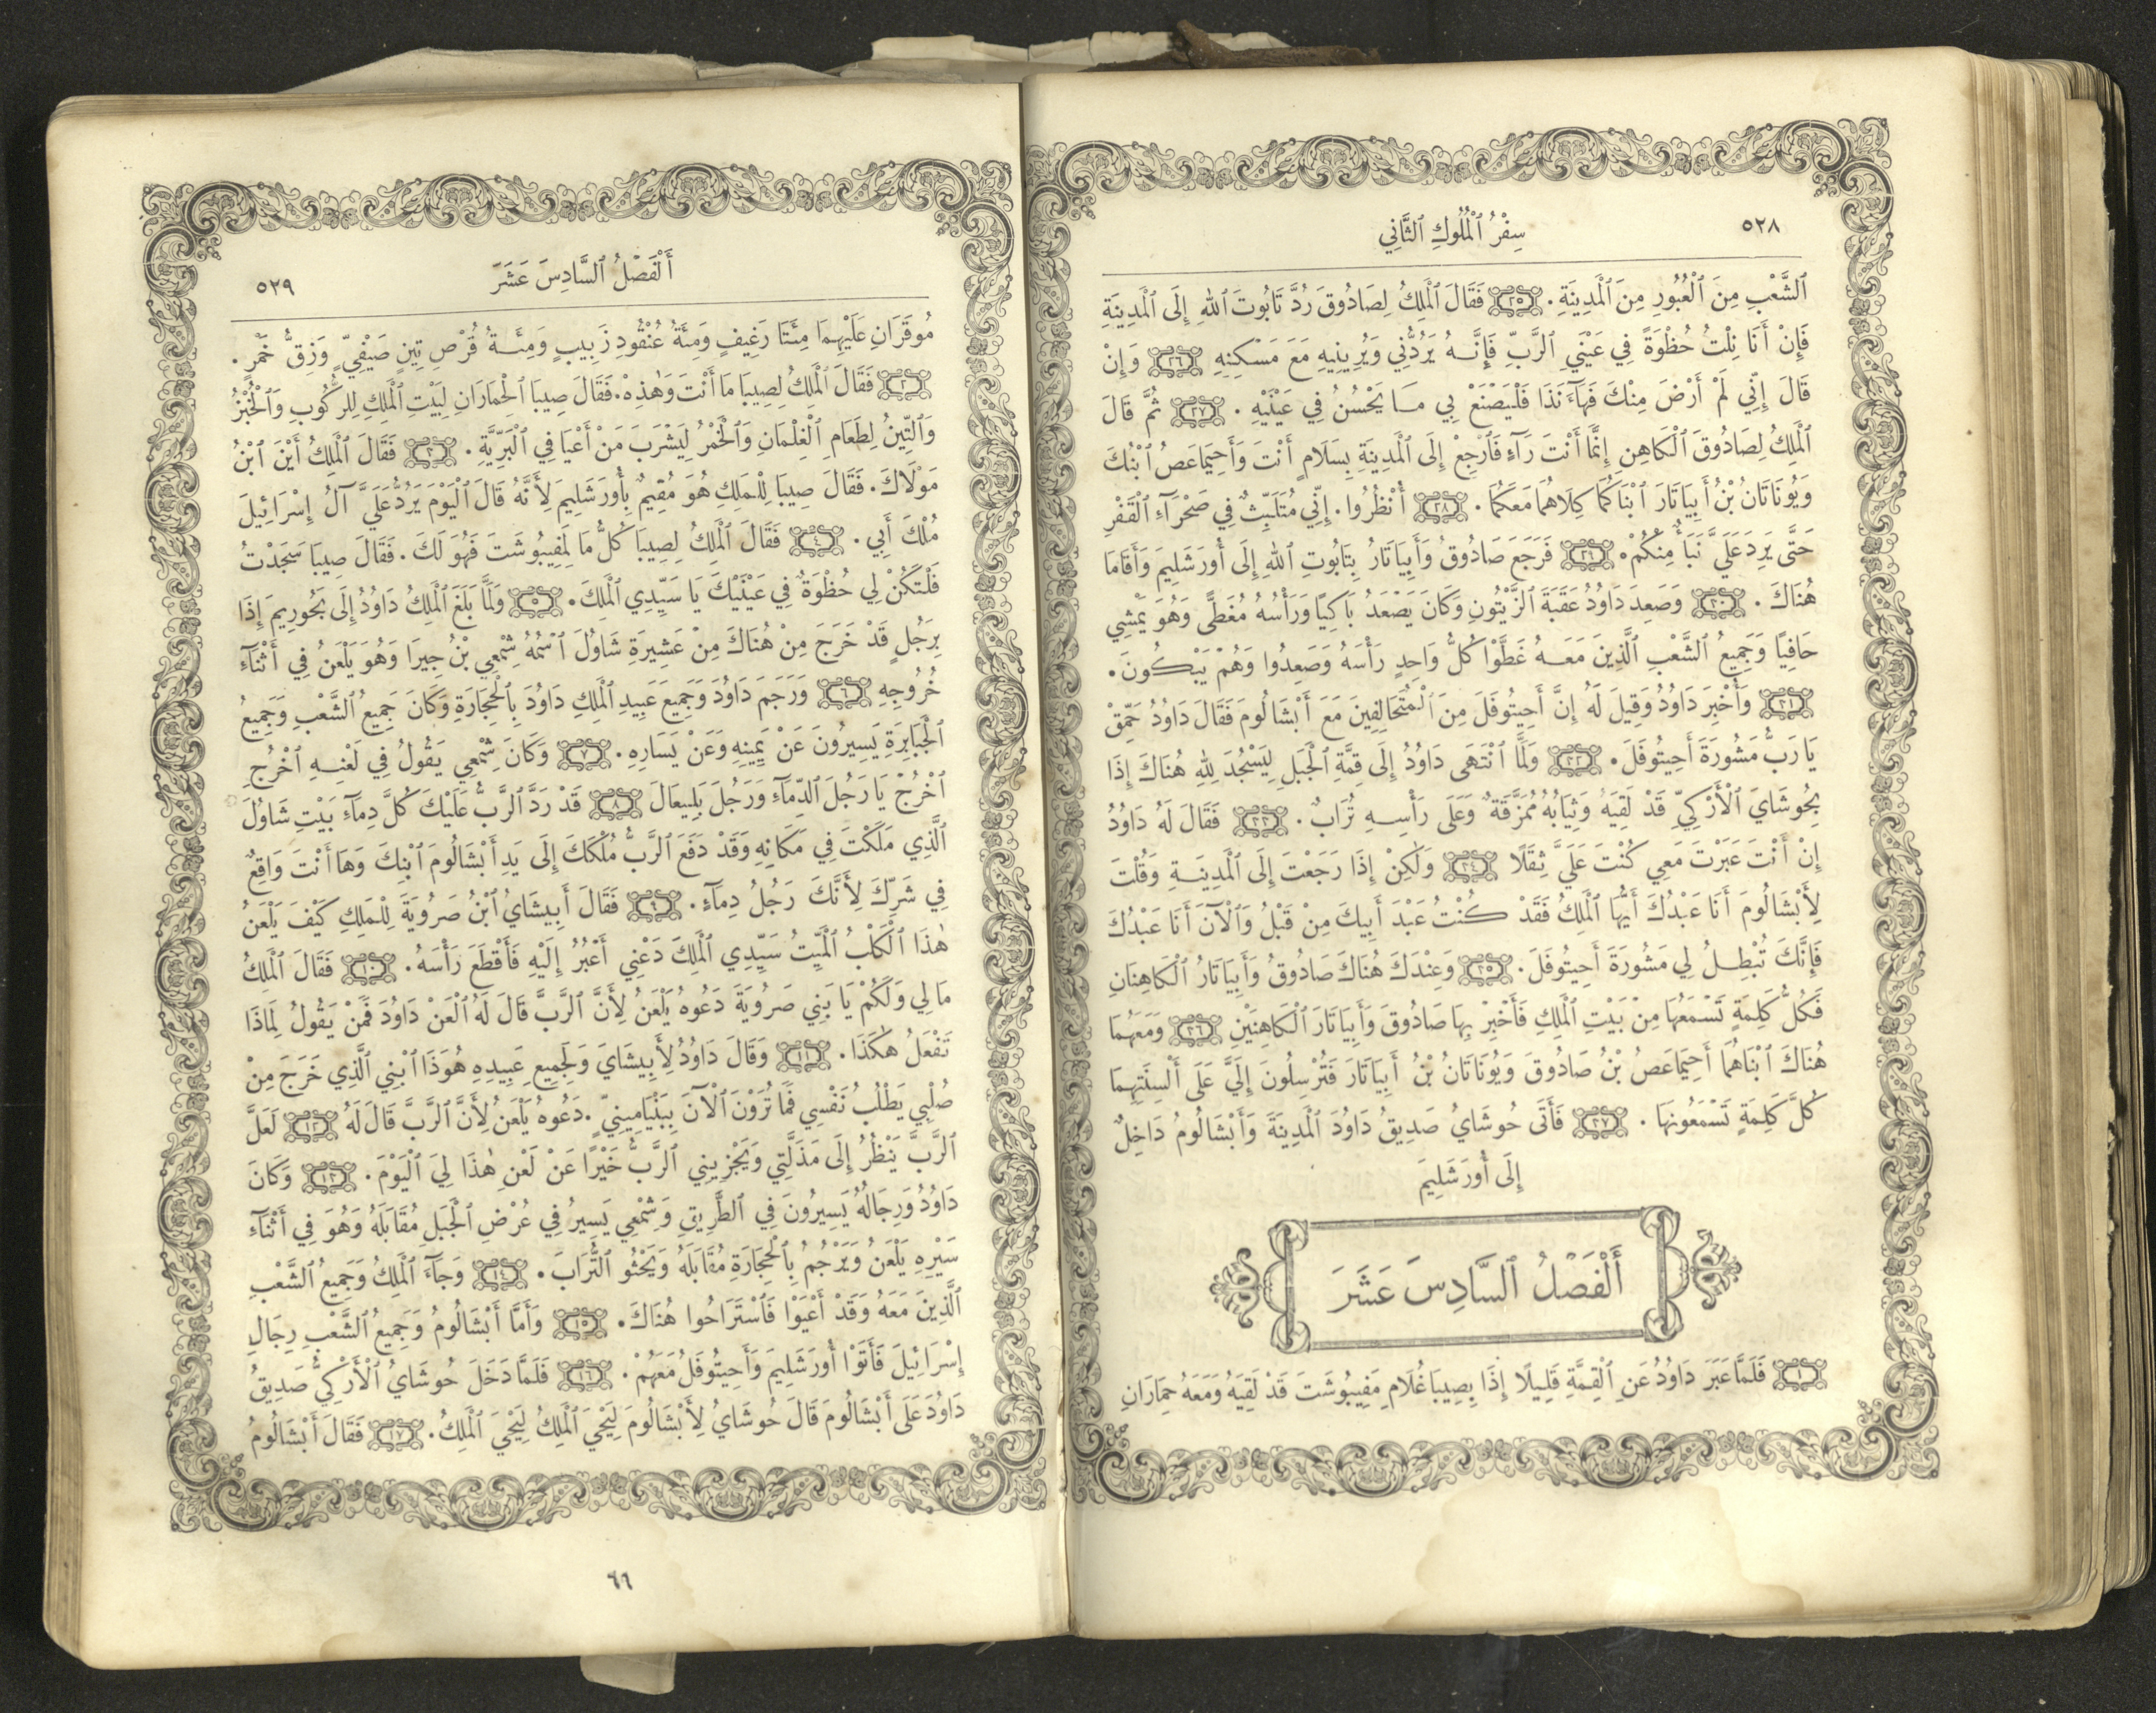 ٥٢٨
سِفْرُ ٱلْمُلُوكِ ٱلثَّانِي
ٱلشَّعْبِ مِنَ ٱلْعُبُورِ مِنَ ٱلْمَدِينَةِ. ٢٥ فَقَالَ ٱلْمَلِكُ لِصَادُوقَ رُدَّ تَابُوتَ ٱللهِ إِلَى ٱلْمَدِينَةِ
فَإِنْ أَنَا نِلْتُ حُظْوَةً فِي عَيْنَيِ ٱلرَّبِّ فَإِنَّهُ يَرُدُّنِي وَيُرِينِيهِ مَعَ مَسْكِنِهِ ٢٦ وَإِنْ
قَالَ إِنِّي لَمْ أَرْضَ مِنْكَ فَهَآءَنَذَا فَلْيَصْنَعْ بِي مَا يَحْسُنُ فِي عَيْنَيْهِ. ٢٧ ثُمَّ قَالَ
ٱلْمَلِكُ لِصَادُوقَ ٱلْكَاهِنِ إِنَّمَا أَنْتَ رَآءٍ فَٱرْجِعْ إِلَى ٱلْمَدِينَةِ بِسَلَامٍ أَنْتَ وَأَحِيمَاعَصُ ٱبْنُكَ
وَيُونَاتَانُ بْنُ أَبِيَاتَارَ ٱبْنَاكُمَا كِلَاهُمَا مَعَكُمَا. ٢٨ أُنْظُرُوا. إِنِّي مُتَلَبِّثٌ فِي صَحْرَآءِ ٱلْقَفْرِ
حَتَّى يَرِدَ عَلَيَّ نَبَأٌ مِنْكُمْ. ٢٩ فَرَجَعَ صَادُوقُ وَأَبِيَاتَارُ بِتَابُوتِ ٱللهِ إِلَى أُورَشَلِيمَ وَأَقَامَا
هُنَاكَ. ٣٠ وَصَعِدَ دَاوُدُ عَقَبَةَ ٱلزَّيْتُونِ وَكَانَ يَصْعَدُ بَاكِيًا وَرَأْسُهُ مُغَطًّى وَهُوَ يَمْشِي
حَافِيًا وَجَمِيعُ ٱلشَّعْبِ ٱلَّذِينَ مَعَهُ غَطَّوْا كُلُّ وَاحِدٍ رَأْسَهُ وَصَعِدُوا وَهُمْ يَبْكُونَ.
٣١ وَأُخْبِرَ دَاوُدُ وَقِيلَ لَهُ إِنَّ أَحِيتُوفَلَ مِنَ ٱلْمُتَحَالِفِينَ مَعَ أَبْشَالُومَ فَقَالَ دَاوُدُ حَمِّقْ
يَا رَبُّ مَشُورَةَ أَحِيتُوفَلَ. ٣٢ وَلَمَّا ٱنْتَهَى دَاوُدُ إِلَى قِمَّةِ ٱلْجَبَلِ لِيَسْجُدَ لِلهِ هُنَاكَ إِذَا
بِحُوشَايَ ٱلْأَرْكِيِّ قَدْ لَقِيَهُ وَثِيَابُهُ مُمَزَّقَةٌ وَعَلَى رَأْسِهِ تُرَابٌ. ٣٣ فَقَالَ لَهُ دَاوُدُ
إِنْ أَنْتَ عَبَرْتَ مَعِي كُنْتَ عَلَيَّ ثِقَلًا ٣٤ وَلٰكِنْ إِذَا رَجَعْتَ إِلَى ٱلْمَدِينَةِ وَقُلْتَ
لِأَبْشَالُومَ أَنَا عَبْدُكَ أَيُّهَا ٱلْمَلِكُ فَقَدْ كُنْتُ عَبْدَ أَبِيكَ مِنْ قَبْلُ وَٱلْآنَ أَنَا عَبْدُكَ
فَإِنَّكَ تُبْطِلُ لِي مَشُورَةَ أَحِيتُوفَلَ. ٣٥ وَعِنْدَكَ هُنَاكَ صَادُوقُ وَأَبِيَاتَارُ ٱلْكَاهِنَانِ
فَكُلُّ كَلِمَةٍ تَسْمَعُهَا مِنْ بَيْتِ ٱلْمَلِكِ فَأَخْبِرْ بِهَا صَادُوقَ وَأَبِيَاتَارَ ٱلْكَاهِنَيْنِ ٣٦ وَمَعَهُمَا
هُنَاكَ ٱبْنَاهُمَا أَحِيمَاعَصُ بْنُ صَادُوقَ وَيُونَاتَانُ بْنُ أَبِيَاتَارَ فَتُرْسِلُونَ إِلَيَّ عَلَى أَلْسِنَتِهِمَا
كُلَّ كَلِمَةٍ تَسْمَعُونَهَا. ٣٧ فَأَتَى حُوشَايُ صَدِيقُ دَاوُدَ ٱلْمَدِينَةَ وَأَبْشَالُومُ دَاخِلٌ
إِلَى أُورَشَلِيمَ
أَلْفَصْلُ ٱلسَّادِسَ عَشَرَ
١ فَلَمَّا عَبَرَ دَاوُدُ عَنِ ٱلْقِمَّةِ قَلِيلًا إِذَا بِصِيبَا غُلَامِ مَفِيبُوشَتَ قَدْ لَقِيَهُ وَمَعَهُ حِمَارَانِ
أَلْفَصْلُ ٱلسَّادِسَ عَشَرَ
٥٢٩
مُوقَرَانِ عَلَيْهِمَا مِئَتَا رَغِيفٍ وَمِئَةُ عُنْقُودِ زَبِيبٍ وَمِئَةُ قُرْصِ تِينٍ صَيْفِيٍّ وَزِقُّ خَمْرٍ.
٢ فَقَالَ ٱلْمَلِكُ لِصِيبَا مَا أَنْتَ وَهٰذِهْ. فَقَالَ صِيبَا ٱلْحِمَارَانِ لِبَيْتِ ٱلْمَلِكِ لِلرُّكُوبِ وَٱلْخُبْزُ
وَٱلتِّينُ لِطَعَامِ ٱلْغِلْمَانِ وَٱلْخَمْرُ لِيَشْرَبَ مَنْ أَعْيَا فِي ٱلْبَرِّيَّةِ. ٣ فَقَالَ ٱلْمَلِكُ أَيْنَ ٱبْنُ
مَوْلَاكَ. فَقَالَ صِيبَا لِلْمَلِكِ هُوَ مُقِيمٌ بِأُورَشَلِيمَ لِأَنَّهُ قَالَ ٱلْيَوْمَ يَرُدُّ عَلَيَّ آلُ إِسْرَائِيلَ
مُلْكَ أَبِي. ٤ فَقَالَ ٱلْمَلِكُ لِصِيبَا كُلُّ مَا لِمَفِيبُوشَتَ فَهُوَ لَكَ. فَقَالَ صِيبَا سَجَدْتُ
فَلْتَكُنْ لِي حُظْوَةٌ فِي عَيْنَيْكَ يَا سَيِّدِي ٱلْمَلِكَ. ٥ وَلَمَّا بَلَغَ ٱلْمَلِكُ دَاوُدُ إِلَى بَحُورِيمَ إِذَا
بِرَجُلٍ قَدْ خَرَجَ مِنْ هُنَاكَ مِنْ عَشِيرَةِ شَاوُلَ ٱسْمُهُ شِمْعِي بْنُ جِيرَا وَهُوَ يَلْعَنُ فِي أَثْنَآءِ
خُرُوجِهِ ٦ وَرَجَمَ دَاوُدَ وَجَمِيعَ عَبِيدِ ٱلْمَلِكِ دَاوُدَ بِٱلْحِجَارَةِ وَكَانَ جَمِيعُ ٱلشَّعْبِ وَجَمِيعُ
ٱلْجَبَابِرَةِ يَسِيرُونَ عَنْ يَمِينِهِ وَعَنْ يَسَارِهِ. ٧ وَكَانَ شِمْعِي يَقُولُ فِي لَعْنِهِ ٱخْرُجِ
ٱخْرُجْ يَا رَجُلَ ٱلدِّمَآءِ وَرَجُلَ بَلِيعَالَ ٨ قَدْ رَدَّ ٱلرَّبُّ عَلَيْكَ كُلَّ دِمَآءِ بَيْتِ شَاوُلَ
ٱلَّذِي مَلَكْتَ فِي مَكَانِهِ وَقَدْ دَفَعَ ٱلرَّبُّ مُلْكَكَ إِلَى يَدِ أَبْشَالُومَ ٱبْنِكَ وَهَا أَنْتَ وَاقِعٌ
فِي شَرِّكَ لِأَنَّكَ رَجُلُ دِمَآءٍ. ٩ فَقَالَ أَبِيشَايُ ٱبْنُ صَرُويَةَ لِلْمَلِكِ كَيْفَ يَلْعَنُ
هٰذَا ٱلْكَلْبُ ٱلْمَيِّتُ سَيِّدِي ٱلْمَلِكَ دَعْنِي أَعْبُرُ إِلَيْهِ فَأَقْطَعَ رَأْسَهُ. ١٠ فَقَالَ ٱلْمَلِكُ
مَا لِي وَلَكُمْ يَا بَنِي صَرُويَةَ دَعُوهُ يَلْعَنُ لِأَنَّ ٱلرَّبَّ قَالَ لَهُ ٱلْعَنْ دَاوُدَ فَمَنْ يَقُولُ لِمَاذَا
تَفْعَلُ هٰكَذَا. ١١ وَقَالَ دَاوُدُ لِأَبِيشَايَ وَلِجَمِيعِ عَبِيدِهِ هُوَذَا ٱبْنِي ٱلَّذِي خَرَجَ مِنْ
صُلْبِي يَطْلُبُ نَفْسِي فَمَا تُرَوْنَ ٱلْآنَ بِبَنْيَامِينِيٍّ. دَعُوهُ يَلْعَنُ لِأَنَّ ٱلرَّبَّ قَالَ لَهُ ١٢ لَعَلَّ
ٱلرَّبَّ يَنْظُرُ إِلَى مَذَلَّتِي وَيَجْزِينِي ٱلرَّبُّ خَيْرًا عَنْ لَعْنِ هٰذَا لِيَ ٱلْيَوْمَ. ١٣ وَكَانَ
دَاوُدُ وَرِجَالُهُ يَسِيرُونَ فِي ٱلطَّرِيقِ وَشِمْعِي يَسِيرُ فِي عُرْضِ ٱلْجَبَلِ مُقَابَلَهُ وَهُوَ فِي أَثْنَآءِ
سَيْرِهِ يَلْعَنُ وَيَرْجُمُ بِٱلْحِجَارَةِ مُقَابَلَهُ وَيَحْثُو ٱلتُّرَابَ. ١٤ وَجَآءَ ٱلْمَلِكُ وَجَمِيعُ ٱلشَّعْبِ
ٱلَّذِينَ مَعَهُ وَقَدْ أَعْيَوْا فَٱسْتَرَاحُوا هُنَاكَ. ١٥ وَأَمَّا أَبْشَالُومُ وَجَمِيعُ ٱلشَّعْبِ رِجَالِ
إِسْرَائِيلَ فَأَتَوْا أُورَشَلِيمَ وَأَحِيتُوفَلُ مَعَهُمْ. ١٦ فَلَمَّا دَخَلَ حُوشَايُ ٱلْأَرْكِيُّ صَدِيقُ
دَاوُدَ عَلَى أَبْشَالُومَ قَالَ حُوشَايُ لِأَبْشَالُومَ لِيَحْيَ ٱلْمَلِكُ لِيَحْيَ ٱلْمَلِكُ. ١٧ فَقَالَ أَبْشَالُومُ
٦٦